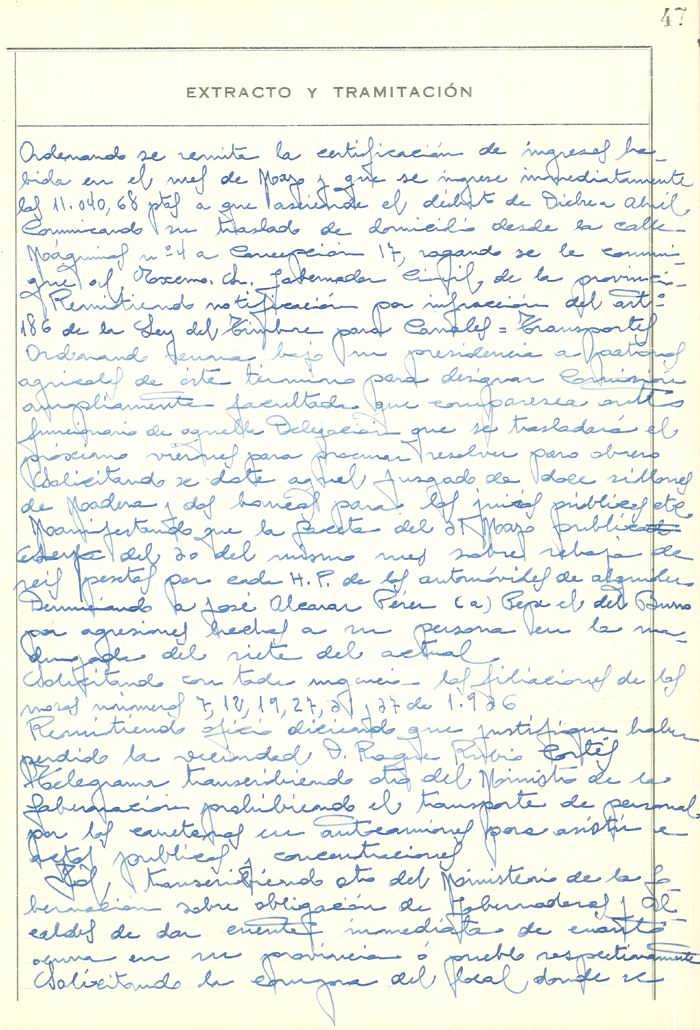 47
EXTRACTO Y TRAMITACIÓN
Ordenando se remita la certificación de ingresos ha-
bida en el mes de Marzo y que se ingrese inmediatamente
las 11.040,68 ptas a que asciende el débito de Dicbre a Abril
Comunicando su traslado de domicilio desde la calle
Máquinas nº 4 a Concepción 17, rogando se le comuni-
que al Excmo. Sr. Gobernador Civil, de la provinci-
Remitiendo notificación por infracción del artº
186 de la Ley del Timbre para Canales = Transportes
Ordenando reuna bajo su presidencia a patronos
agricolas de éste término para designar Comision
ampliamente facultada que comparezca ante
funcionario de aquella Delegación que se trasladará el
próximo viernes para procurar resolver paro obrero
Solicitando se dote aquel juzgado de doce sillones
de Madera y dos bancas para los juicios públicos etc
Manifestando que la Gaceta del 31 Marzo publica
del 30 del mismo mes sobre rebaja de
seis pesetas por cada H.P. de los automóviles de alquiler
Denunciando a José Alcaraz Pérez (a) Pepe el del Burro
por agresiones hechas a su persona en la ma-
drugada del siete del actual
Solicitando con toda urgencia las filiaciones de los
mozos números 7, 12, 19, 27, 31 y 37 de 1.936
Remitiendo oficio diciendo que justifique haber
perdido la vecindad D. Roque Rubio Cortés
Telegrama transcribiendo otro del Ministro de la
Gobernación prohibiendo el transporte de personal
por las carreteras en autocamiones para asistir a
actos publicos y concentraciones
Id, transcribiendo otro del Ministerio de la Go
bernación sobre obligación de Gobernadores y Al
caldes de dar cuenta inmediata de cuanto
ocurra en su provincia ó pueblo respectivamente
Solicitando la del local donde se